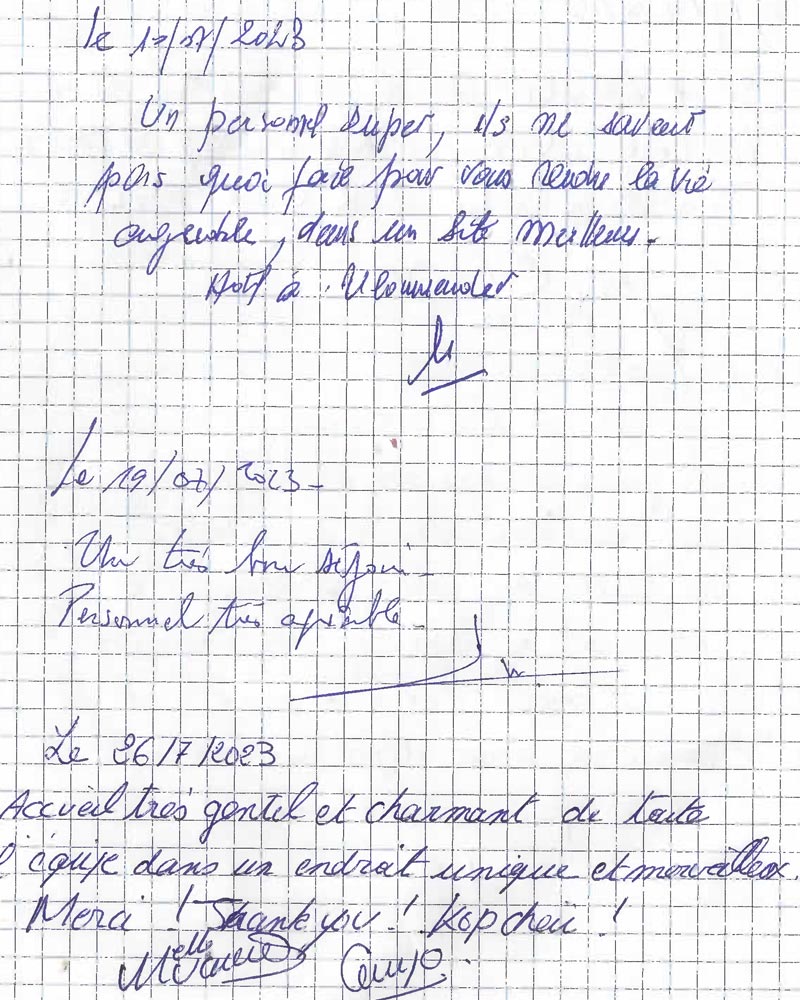 Le 17/07/2023
Un personnel super, ils ne savent
plus quoi faire pour vous rendre la vie
agréable, dans un site merveilleux.
Hotel à
Le 19/07/2023-
Un très bon séjour-
Personnel très agréable-
Le 26/7/2023
Accueil très gentil et charmant de toute
l'équipe dans un endroit unique et merveilleux.
Merci ! Thank you ! Kop chai !